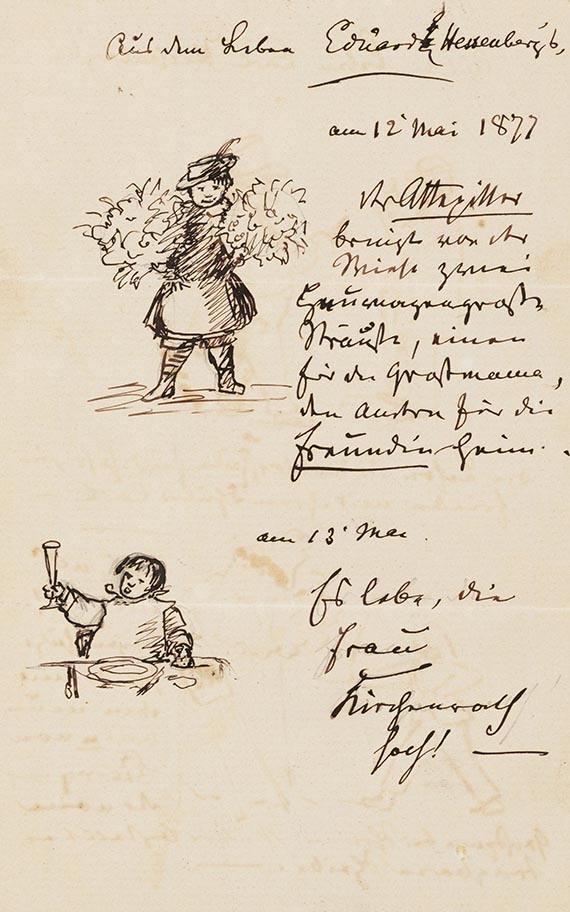 Aus dem Leben Eduard Hessenberg's,
am 12t Mai 1877
der Attepitter
bringt von der
Wiese zwei
heuwagengroße
Sträuße, einen
für die Großmama,
den andren für die
Freundin heim.
am 13t Mai.
Es lebe, die
Frau
Kirchenrath
hoch! —